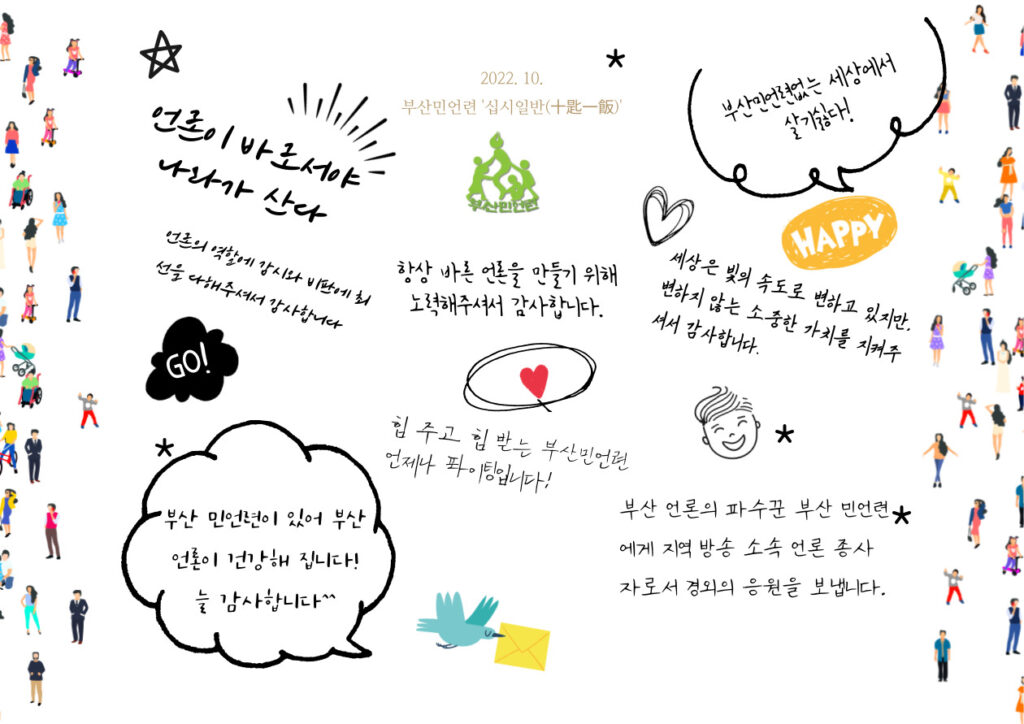 2022. 10.
부산민언련 '십시일반(十匙一飯)'
부산민언련
언론이 바로서야
나라가 산다
부산민언련없는 세상에서
살기싫다!
HAPPY
언론의 역할에 감시와 비판에 최
선을 다해주셔서 감사합니다
항상 바른 언론을 만들기 위해
노력해주셔서 감사합니다.
세상은 빛의 속도로 변하고 있지만,
변하지 않는 소중한 가치를 지켜주
셔서 감사합니다.
GO!
힘 주고 힘 받는 부산민언련
언제나 퐈이팅입니다!
부산 민언련이 있어 부산
언론이 건강해 집니다!
늘 감사합니다^^
부산 언론의 파수꾼 부산 민언련
에게 지역 방송 소속 언론 종사
자로서 경외의 응원을 보냅니다.